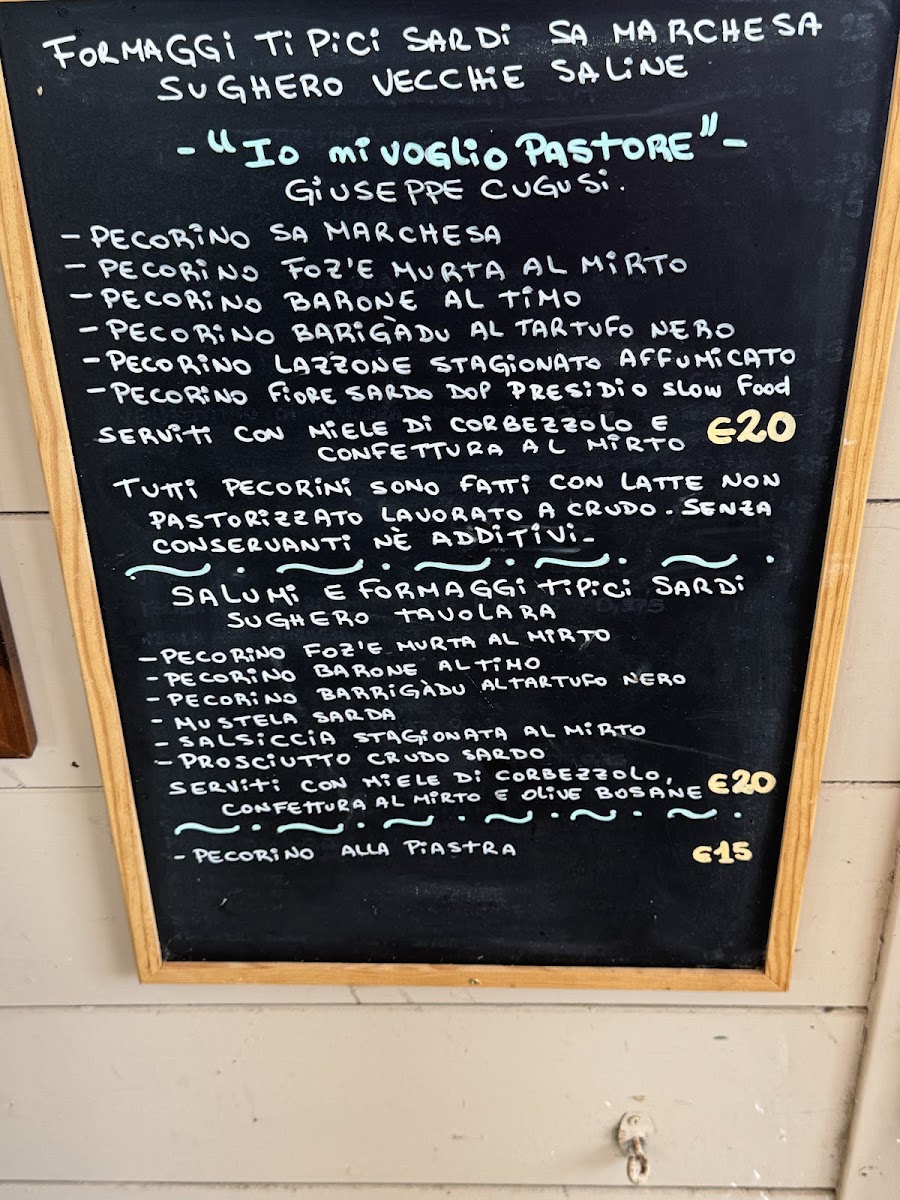 FORMAGGI TIPICI SARDI SA MARCHESA
SUGHERO VECCHIE SALINE
- "Io mi voglio PASTORE" -
GIUSEPPE CUGUSI.
- PECORINO SA MARCHESA
- PECORINO FOZ'E MURTA AL MIRTO
- PECORINO BARONE AL TIMO
- PECORINO BARIGÀDU AL TARTUFO NERO
- PECORINO LAZZONE STAGIONATO AFFUMICATO
- PECORINO FIORE SARDO DOP PRESIDIO SLOW Food
SERVITI CON MIELE DI CORBEZZOLO E
CONFETTURA AL MIRTO €20
TUTTI PECORINI SONO FATTI CON LATTE NON
PASTORIZZATO LAVORATO A CRUDO. SENZA
CONSERVANTI NÈ ADDITIVI-
SALUMI E FORMAGGI TIPICI SARDI
SUGHERO TAVOLARA
- PECORINO FOZ'E MURTA AL MIRTO
- PECORINO BARONE AL TIMO
- PECORINO BARRIGÀDU AL TARTUFO NERO
- MUSTELA SARDA
- SALSICCIA STAGIONATA AL MIRTO
- PROSCIUTTO CRUDO SARDO
SERVITI CON MIELE DI CORBEZZOLO, €20
CONFETTURA AL MIRTO E OLIVE BOSANE
- PECORINO ALLA PIASTRA €15